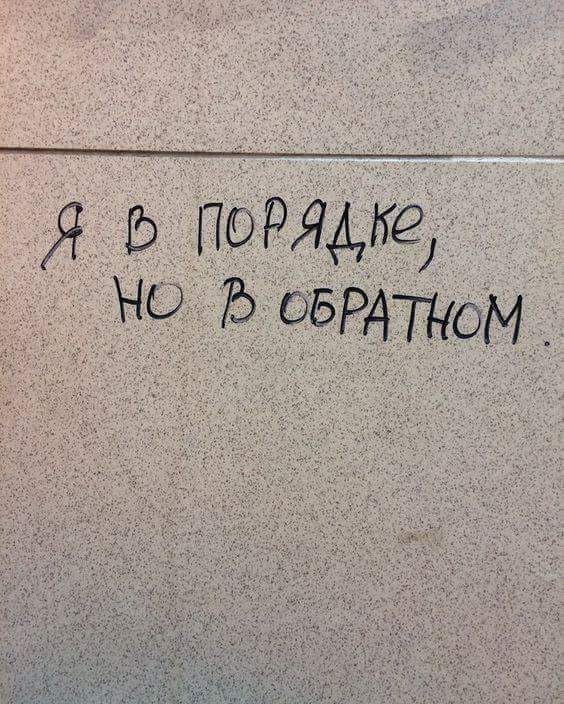 Я В ПОРЯДКе,
НО В ОБРАТНОМ.